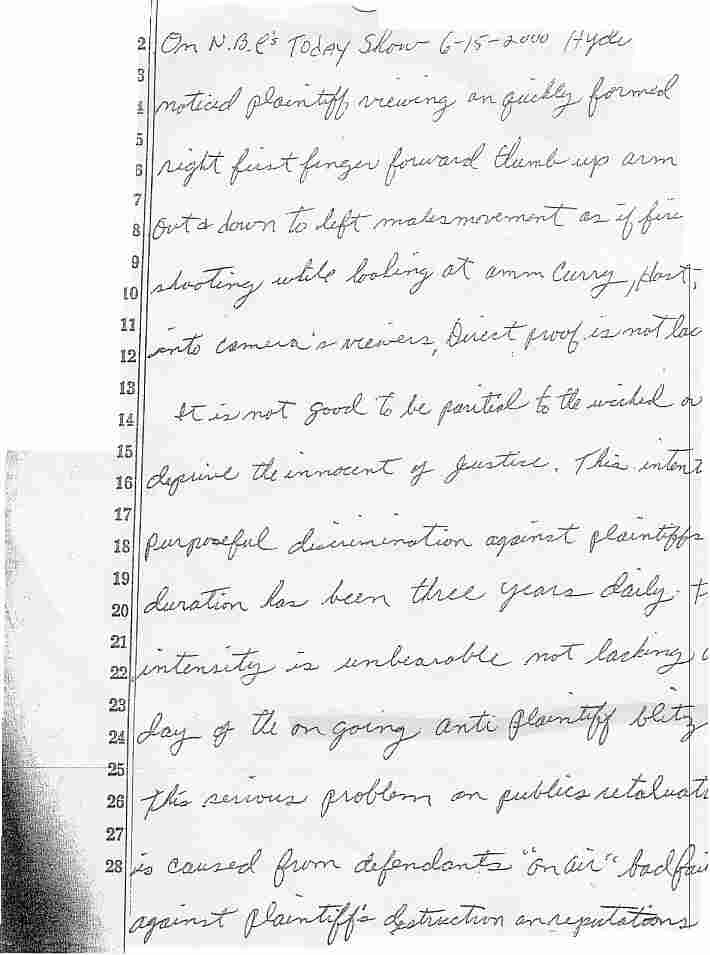 2 On N.B.C's Today Show 6-15-2000 Hyde
3
4 noticed plaintiff viewing an quickly formed
5
6 right first finger forward thumb up arm
7
8 out & down to left makes movement as if fire
9
10 shooting while looking at amm Curry, Host,
11
12 into camera's viewers, Direct proof is not lac
13
14 It is not good to be paritial to the wicked or
15
16 deprive the innocent of justice. This intent
17
18 purposeful discrimination against plaintiffs
19
20 duration has been three years daily t
21
22 intensity is unbearable not lacking
23
24 day of the on going anti plaintiff blitz
25
26 this serious problem on publics
27
28 is caused from defendants "on air" badfai
against plaintiff's destruction on reputations